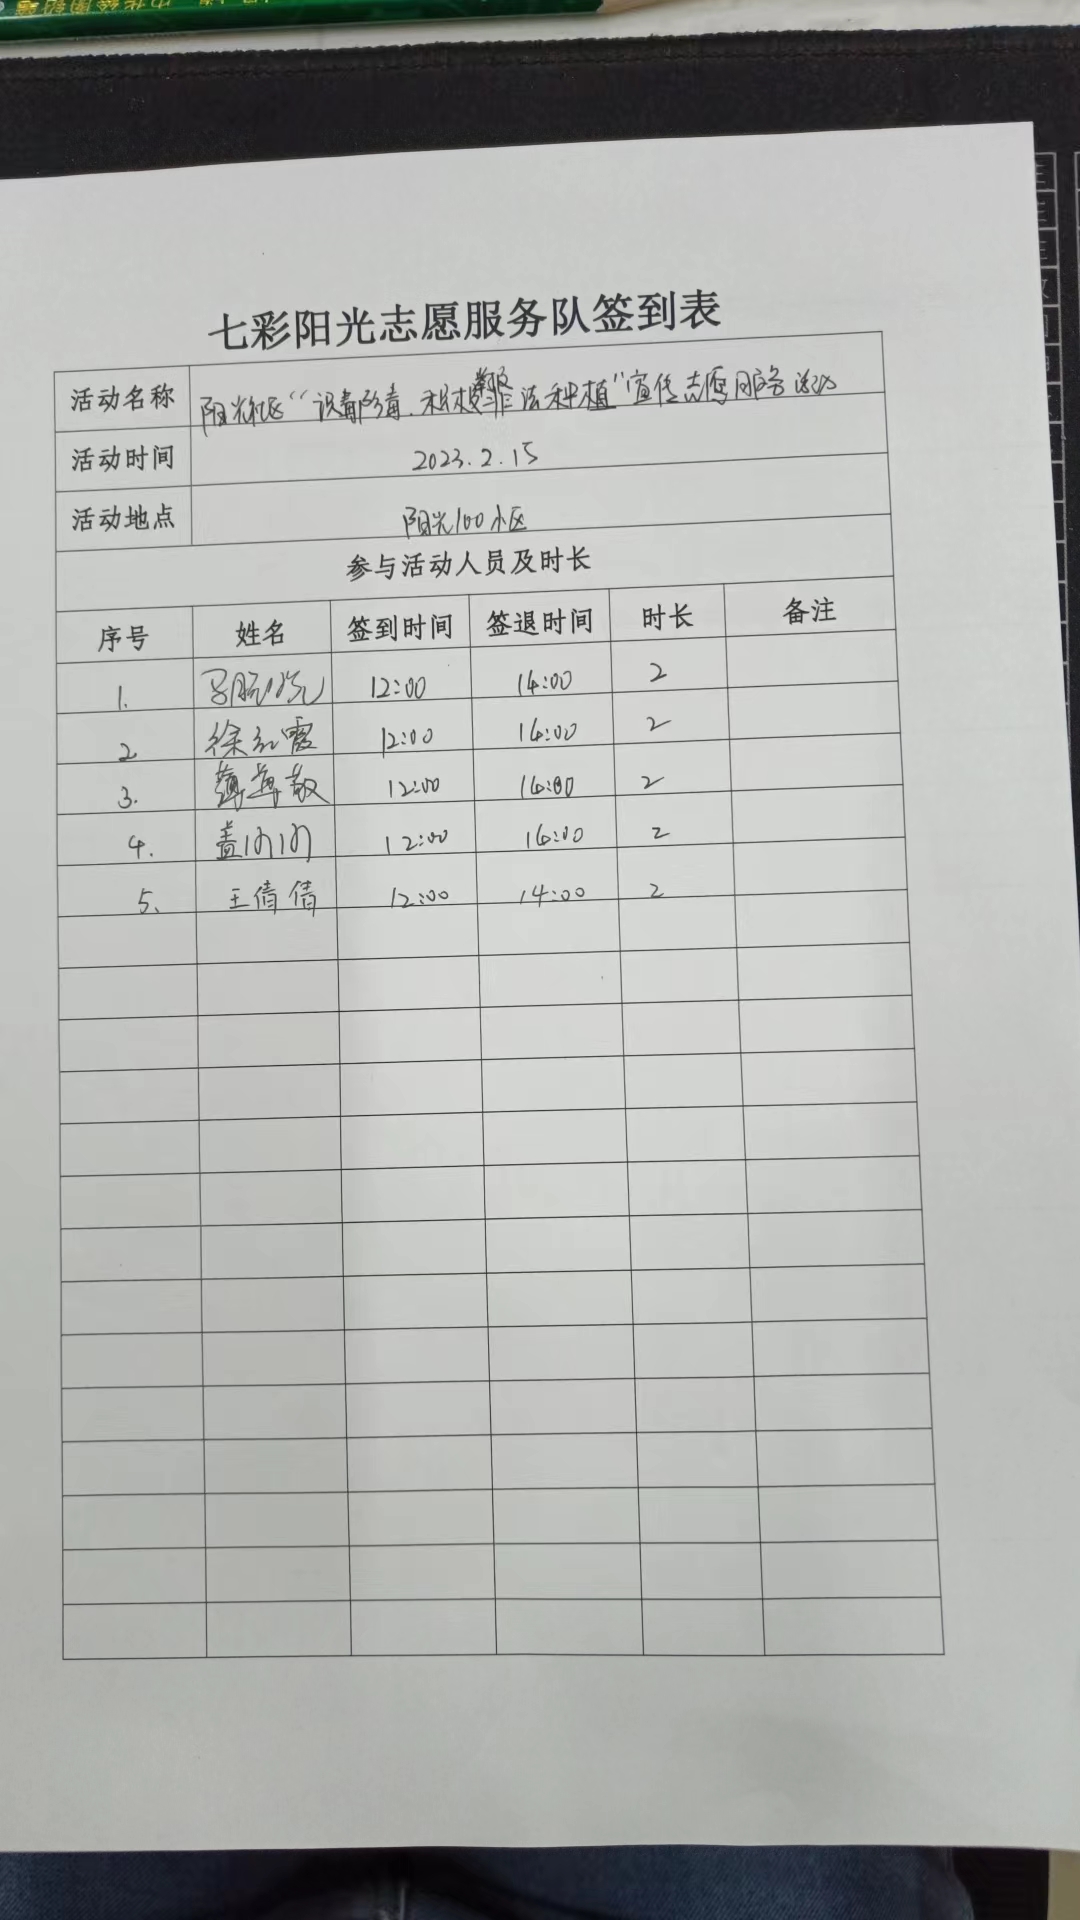 中华绘图铅笔
七彩阳光志愿服务队签到表
活动名称 阳光社区“识毒防毒.积极举报非法种植”宣传志愿服务活动
活动时间 2023.2.15
活动地点 阳光100小区
参与活动人员及时长
序号 姓名 签到时间 签退时间 时长 备注
1. 12:00 14:00 2
2 徐红霞 12:00 14:00 2
3. 12:00 14:00 2
4. 盖 12:00 14:00 2
5. 王倩倩 12:00 14:00 2